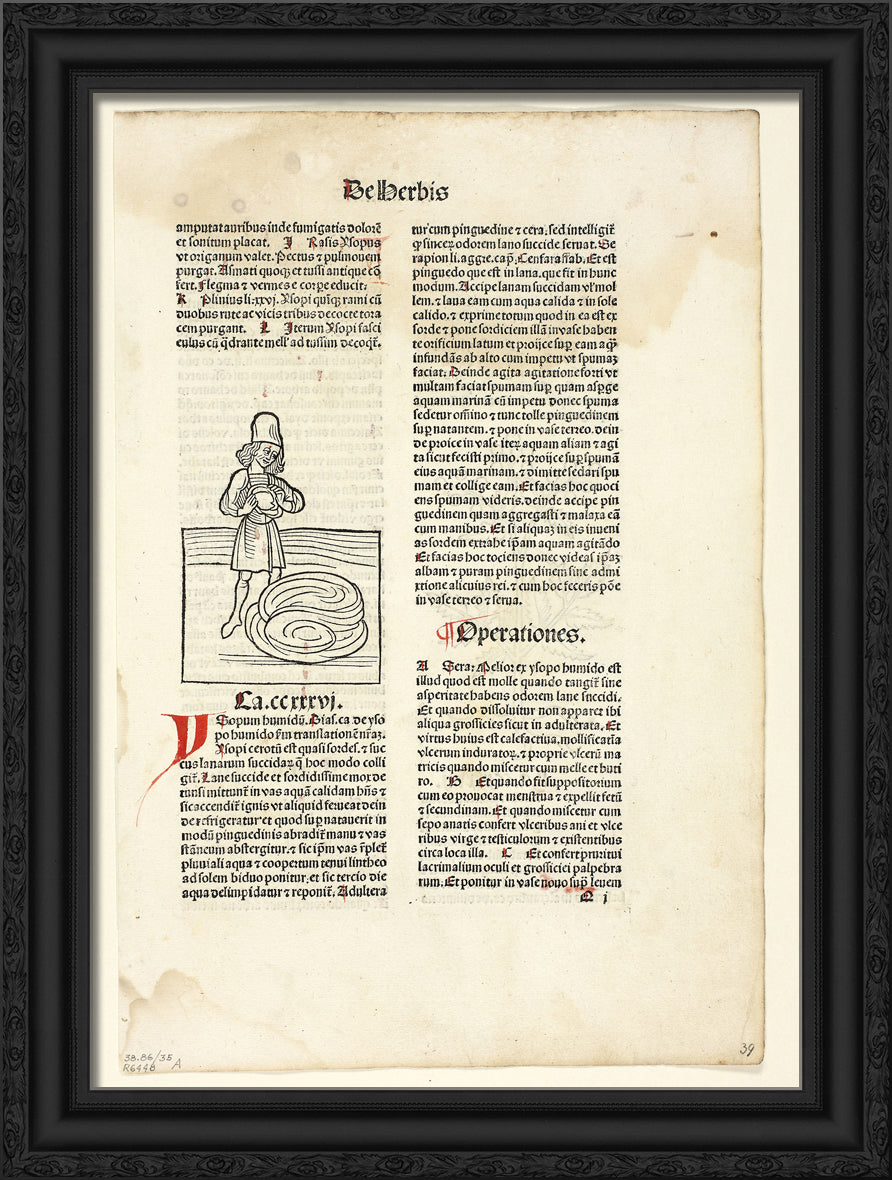 De Herbis
amputat auribus inde fumigatis dolorē
et sonitum placat. J Rasis Ysopus
vt origanum valet. Pectus ⁊ pulmonem
purgat. Asmati quoqꝫ et tussi antique cō
fert. Flegma ⁊ vermes e corpe educit:
K Plinius li: xxvj. Ysopi quīqꝫ rami cū
duobus rute ac vicis tribus decocte tora
cem purgant. L Jterum Ysopi fasci
culus cū q̄drante mell' ad tussim decoqr̄.
Ca. ccxxxvj.
YSopum humidū. Dias. ca de yso
po humido fm translationē nr̄aꝫ.
Ysopi cerotū est quasi sordes. ⁊ suc
cus lanarum succidaꝝ q̄ hoc modo colli
gir̄. Lane succide et sordidissime mox de
tunsi mittunt̄ in vas aquā calidam hn̄s ⁊
sic accendir̄ ignis vt aliquid ferueat dein
de refrigeratur et quod sup̄ natauerit in
modū pinguedinis abradir̄ manu ⁊ vas
stāneum abstergitur. ⁊ sic ip̄m vas r̄pler̄
pluuiali aqua ⁊ coopertum tenui lintheo
ad solem biduo ponitur. et sic tercio die
aqua delimpidatur ⁊ reponir̄. Adultera
tur cum pinguedine ⁊ cera. sed intelligir̄
ꝙ sinceꝝ odorem lano succide seruat. Se
rapion li. aggre. cap̄. Cenfaraffab. Et est
pinguedo que est in lana. que fit in hunc
modum. Accipe lanam succidam vl' mol
lem. ⁊ laua eam cum aqua calida ⁊ in sole
calido. ⁊ exprime totum quod in ea est ex
sorde ⁊ pone sordiciem illā in vase haben
te orificium latum et proijce sup̄ eam aq̄ꝫ
infundās ab alto cum impetu vt spumaꝫ
faciat: Deinde agita agitatione forti vt
multam faciat spumam sup̄ quam asp̄ge
aquam marinā cū impetu donec spuma
sedetur om̄ino ⁊ tunc tolle pinguedinem
sup̄ natantem. ⁊ pone in vase terreo. dein
de proice in vase iteꝝ aquam aliam ⁊ agi
ta sicut fecisti primo. ⁊ proijce sup̄ spumā
eius aquā marinam. ⁊ dimitte sedari spu
mam et collige eam. Et facias hoc quoci
ens spumam videris. deinde accipe pin
guedinem quam aggregasti ⁊ malaxa eā
cum manibus. Et si aliquaꝫ in eis inueni
as sordem extrahe ip̄am aquam agitādo
Et facias hoc tociens donec videas ip̄aꝫ
albam ⁊ puram pinguedinem sine admi
xtione alicuius rei. ⁊ cum hoc feceris pōe
in vase terreo ⁊ serua.
¶Operationes.
A Sera: Melior ex ysopo humido est
illud quod est molle quando tangir̄ sine
asperitate habens odorem lane succidi.
Et quando dissoluitur non apparet ibi
aliqua grossicies sicut in adulterata. Et
virtus huius est calefactiua. mollificatiā
vlcerum induratoꝝ. ⁊ proprie vlcerū ma
tricis quando miscetur cum melle et buti
ro. B Et quando fit suppositorium
cum eo prouocat menstrua ⁊ expellit fetū
⁊ secundinam. Et quando miscetur cum
sepo anatis confert vlceribus ani et vlce
ribus virge ⁊ testiculorum ⁊ existentibus
circa loca illa. C Et confert pruritui
lacrimalium oculi et grossiciei palpebra
rum. Et ponitur in vase nouo sup̄ leuem
Q j
38.86/35
R6448 A
39